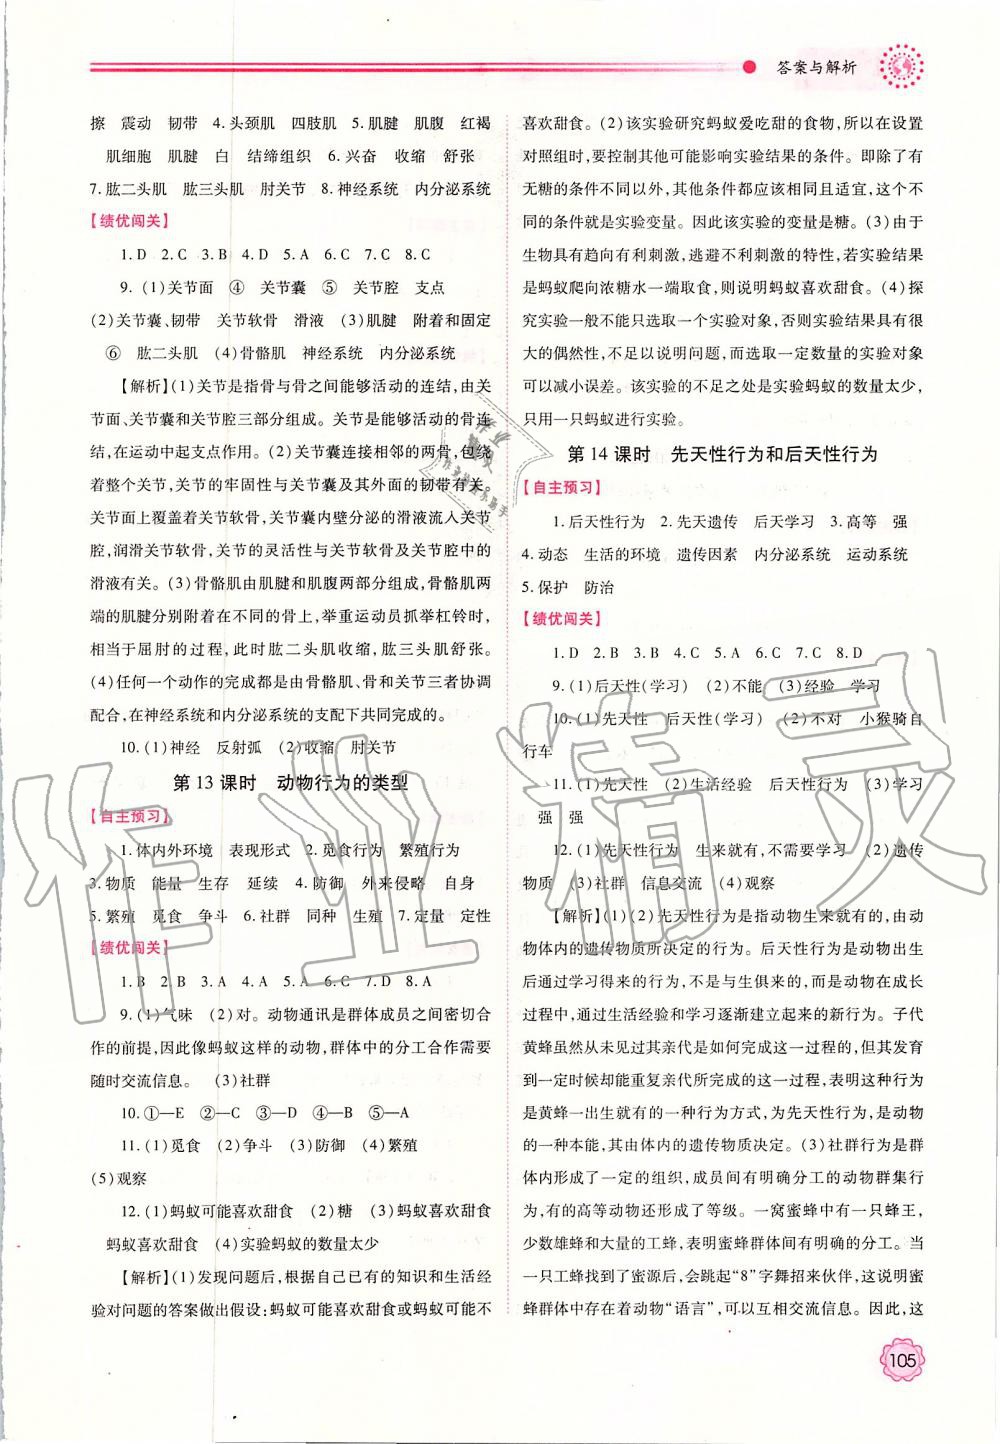 答案与解析
擦 震动 韧带 4.头颈肌 四肢肌 5.肌腱 肌腹 红褐
肌细胞 肌腱 白 结缔组织 6.兴奋 收缩 舒张
7.肱二头肌 肱三头肌 肘关节 8.神经系统 内分泌系统
【绩优闯关】
1.D 2.C 3.B 4.D 5.A 6.C 7.C 8.C
9.(1)关节面 ④ 关节囊 ⑤ 关节腔 支点
(2)关节囊、韧带 关节软骨 滑液 (3)肌腱 附着和固定
⑥ 肱二头肌 (4)骨骼肌 神经系统 内分泌系统
【解析】(1)关节是指骨与骨之间能够活动的连结,由关
节面、关节囊和关节腔三部分组成。关节是能够活动的骨连
结,在运动中起支点作用。(2)关节囊连接相邻的两骨,包绕
着整个关节,关节的牢固性与关节囊及其外面的韧带有关。
关节面上覆盖着关节软骨,关节囊内壁分泌的滑液流入关节
腔,润滑关节软骨,关节的灵活性与关节软骨及关节腔中的
滑液有关。(3)骨骼肌由肌腱和肌腹两部分组成,骨骼肌两
端的肌腱分别附着在不同的骨上,举重运动员抓举杠铃时,
相当于屈肘的过程,此时肱二头肌收缩,肱三头肌舒张。
(4)任何一个动作的完成都是由骨骼肌、骨和关节三者协调
配合,在神经系统和内分泌系统的支配下共同完成的。
10.(1)神经 反射弧 (2)收缩 肘关节
第 13 课时 动物行为的类型
【自主预习】
1.体内外环境 表现形式 2.觅食行为 繁殖行为
3.物质 能量 生存 延续 4.防御 外来侵略 自身
5.繁殖 觅食 争斗 6.社群 同种 生殖 7.定量 定性
【绩优闯关】
1.B 2.B 3.A 4.A 5.A 6.C 7.D 8.A
9.(1)气味 (2)对。动物通讯是群体成员之间密切合
作的前提,因此像蚂蚁这样的动物,群体中的分工合作需要
随时交流信息。 (3)社群
10.①—E ②—C ③—D ④—B ⑤—A
11.(1)觅食 (2)争斗 (3)防御 (4)繁殖
(5)观察
12.(1)蚂蚁可能喜欢甜食 (2)糖 (3)蚂蚁喜欢甜食
蚂蚁喜欢甜食 (4)实验蚂蚁的数量太少
【解析】(1)发现问题后,根据自己已有的知识和生活经
验对问题的答案做出假设:蚂蚁可能喜欢甜食或蚂蚁可能不
喜欢甜食。(2)该实验研究蚂蚁爱吃甜的食物,所以在设置
对照组时,要控制其他可能影响实验结果的条件。即除了有
无糖的条件不同以外,其他条件都应该相同且适宜,这个不
同的条件就是实验变量。因此该实验的变量是糖。(3)由于
生物具有趋向有利刺激、逃避不利刺激的特性,若实验结果
是蚂蚁爬向浓糖水一端取食,则说明蚂蚁喜欢甜食。(4)探
究实验一般不能只选取一个实验对象,否则实验结果有很
大的偶然性,不足以说明问题,而选取一定数量的实验对象
可以减小误差。该实验的不足之处是实验蚂蚁的数量太少,
只用一只蚂蚁进行实验。
第 14 课时 先天性行为和后天性行为
【自主预习】
1.后天性行为 2.先天遗传 后天学习 3.高等 强
4.动态 生活的环境 遗传因素 内分泌系统 运动系统
5.保护 防治
【绩优闯关】
1.D 2.B 3.B 4.C 5.A 6.D 7.C 8.D
9.(1)后天性(学习) (2)不能 (3)经验 学习
10.(1)先天性 后天性(学习) (2)不对 小猴骑自
行车
11.(1)先天性 (2)生活经验 后天性 (3)学习
强 强
12.(1)先天性行为 生来就有,不需要学习 (2)遗传
物质 (3)社群 信息交流 (4)观察
【解析】(1)(2)先天性行为是指动物生来就有的,由动
物体内的遗传物质所决定的行为。后天性行为是动物出生
后通过学习得来的行为,不是与生俱来的,而是动物在成长
过程中,通过生活经验和学习逐渐建立起来的新行为。子代
黄蜂虽然从未见过其亲代是如何完成这一过程的,但其发育
到一定时候却能重复亲代所完成的这一过程,表明这种行为
是黄蜂一出生就有的一种行为方式,为先天性行为,是动物
的一种本能,其由体内的遗传物质决定。(3)社群行为是群
体内形成了一定的组织,成员间有明确分工的动物群集行
为,有的高等动物还形成了等级。一窝蜜蜂中有一只蜂王,
少数雄蜂和大量的工蜂,表明蜜蜂群体间有明确的分工。当
一只工蜂找到了蜜源后,会跳起“8”字舞招来伙伴,这说明蜜
蜂群体中存在着动物“语言”,可以互相交流信息。因此,这
105
作业精灵